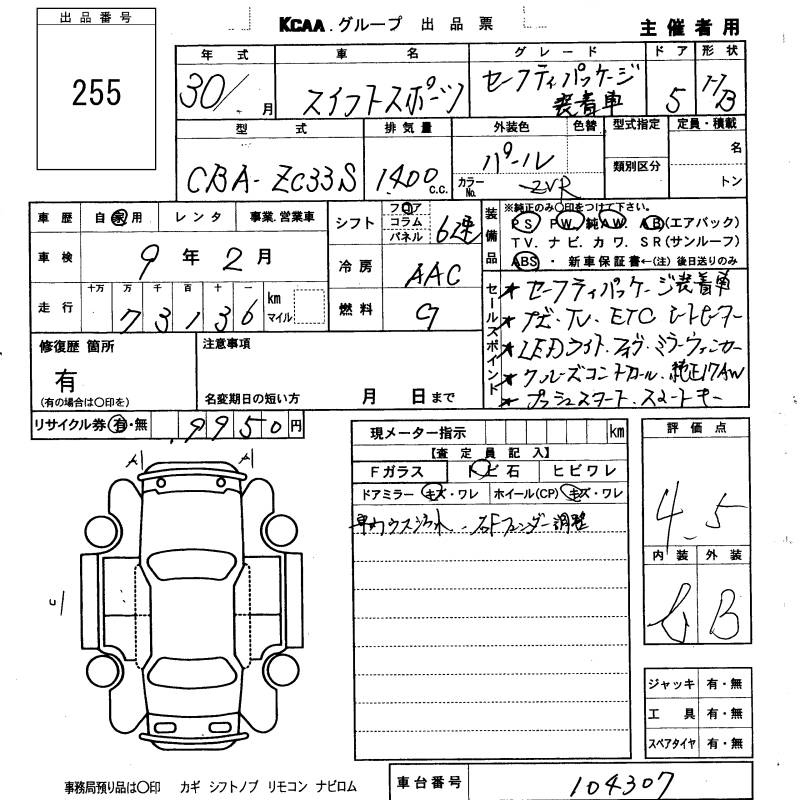 出品番号
255
KCAA.グループ 出品票
主催者用
年式 車名 グレード ドア 形状
30/ 月 スイフトスポーツ セーフティパッケージ 装着車 5 H/B
型式 排気量 外装色 色替 型式指定 定員・積載
CBA-ZC33S 1400 c.c. パール 名
カラーNo. ZVR 類別区分 トン
車歴 自家用 レンタ 事業.営業車
シフト フロア コラム パネル 6速
装備品
※純正のみ○印をつけて下さい。
PS. PW. 純AW. AB(エアバック)
TV. ナビ. カワ. SR(サンルーフ)
ABS・新車保証書←(注)後日送りのみ
車検 9年2月
冷房 AAC
走行 十万 万 千 百 十 一
73136 km マイル
燃料 G
セールスポイント
★セーフティパッケージ装着車
★ナビ.TV.ETC シートヒーター
★LEDライト.フォグ.ミラーウィンカー
★クルーズコントロール.純正17AW
★プッシュスタート.スマートキー
修復歴 箇所 注意事項
有
(有の場合は○印を)
名変期日の短い方 月 日まで
リサイクル券 有・無 9950円
現メーター指示 km
【査定員記入】
Fガラス トビ石 ヒビワレ
ドアミラー キズ・ワレ ホイール(CP) キズ・ワレ
車内ウス汚れ
フェンダー調整
評価点
4.5
内装 外装
B
ジャッキ 有・無
工具 有・無
スペアタイヤ 有・無
事務局預り品は○印 カギ シフトノブ リモコン ナビロム
車台番号 104307